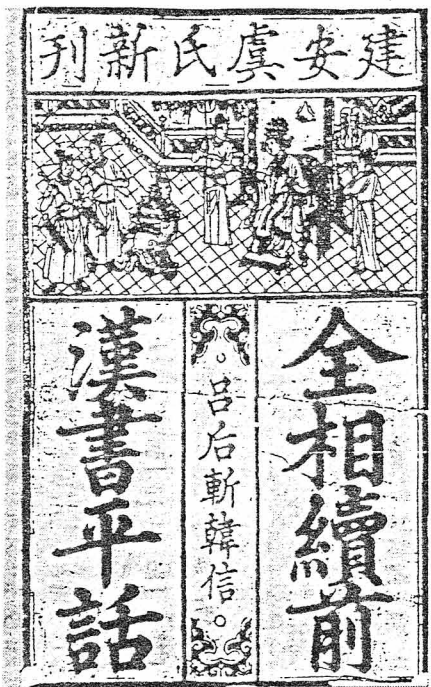 建安虞氏新刊
全相續前
。吕后斬韓信。
漢書平話